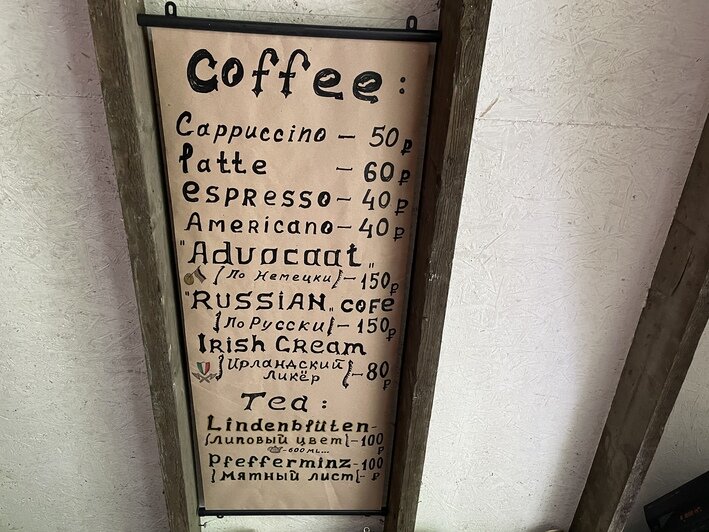 Coffee:
Cappuccino – 50₽
Latte – 60₽
espresso – 40₽
Americano – 40₽
"Advocaat"
[По Немецки] – 150₽
"RUSSIAN" cofe
[По Русски] – 150₽
Irish Cream
[Ирландский
Ликёр] – 80₽
Tea:
Lindenblüten-
[липовый цвет] – 100₽
-600 ML...
Pfefferminz – 100
[мятный лист] – ₽